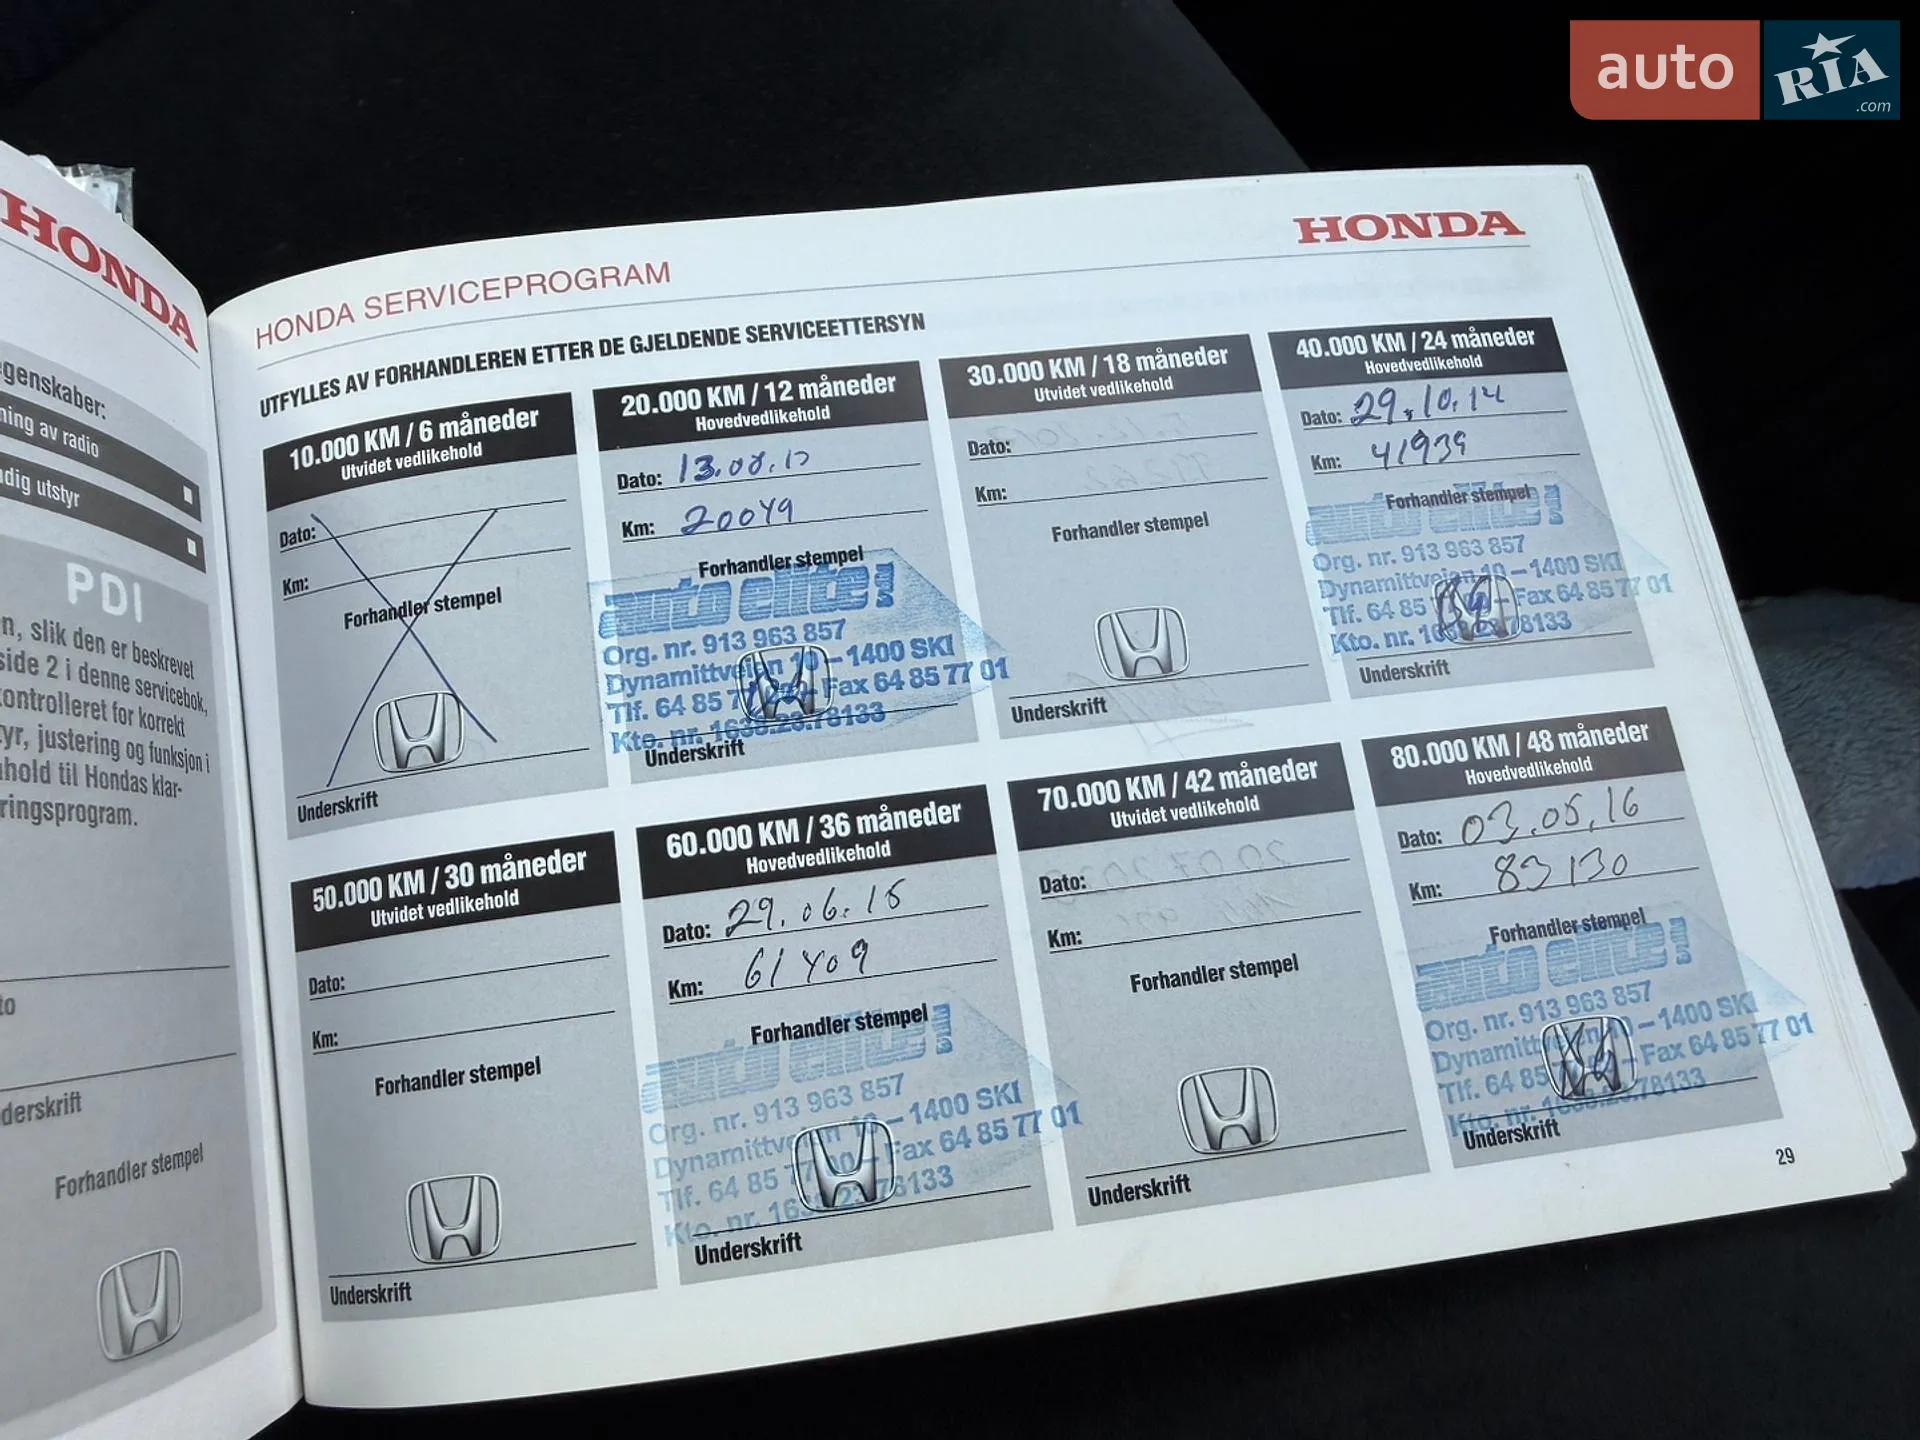 auto RIA.com
HONDA
genskaber:
ning av radio
dig utstyr
PDI
n, slik den er beskrevet
side 2 i denne servicebok,
ontrolleret for korrekt
yr, justering og funksjon i
hold til Hondas klar-
ringsprogram.
to
derskrift
Forhandler stempel
HONDA
HONDA SERVICEPROGRAM
UTFYLLES AV FORHANDLEREN ETTER DE GJELDENDE SERVICEETTERSYN
10.000 KM / 6 måneder
Utvidet vedlikehold
Dato:
Km:
Forhandler stempel
Underskrift
20.000 KM / 12 måneder
Hovedvedlikehold
Dato: 13.08.13
Km: 20049
Forhandler stempel
auto elite!
Org. nr. 913 963 857
Dynamittveien 10 – 1400 SKI
Tlf. 64 85 77 00 – Fax 64 85 77 01
Kto. nr. 1638.23.78133
Underskrift
30.000 KM / 18 måneder
Utvidet vedlikehold
Dato:
Km:
Forhandler stempel
Underskrift
40.000 KM / 24 måneder
Hovedvedlikehold
Dato: 29.10.14
Km: 41939
Forhandler stempel
auto elite!
Org. nr. 913 963 857
Dynamittveien 10 – 1400 SKI
Tlf. 64 85 – Fax 64 85 77 01
Kto. nr. 1638.23.78133
Underskrift
50.000 KM / 30 måneder
Utvidet vedlikehold
Dato:
Km:
Forhandler stempel
Underskrift
60.000 KM / 36 måneder
Hovedvedlikehold
Dato: 29.06.15
Km: 61409
Forhandler stempel
auto elite!
Org. nr. 913 963 857
Dynamittveien 10 – 1400 SKI
Tlf. 64 85 77 00 – Fax 64 85 77 01
Kto. nr. 1638.23.78133
Underskrift
70.000 KM / 42 måneder
Utvidet vedlikehold
Dato:
Km:
Forhandler stempel
Underskrift
80.000 KM / 48 måneder
Hovedvedlikehold
Dato: 03.05.16
Km: 83130
Forhandler stempel
auto elite!
Org. nr. 913 963 857
Dynamittveien 10 – 1400 SKI
Tlf. 64 85 77 00 – Fax 64 85 77 01
Kto. nr. 1638.23.78133
Underskrift
29